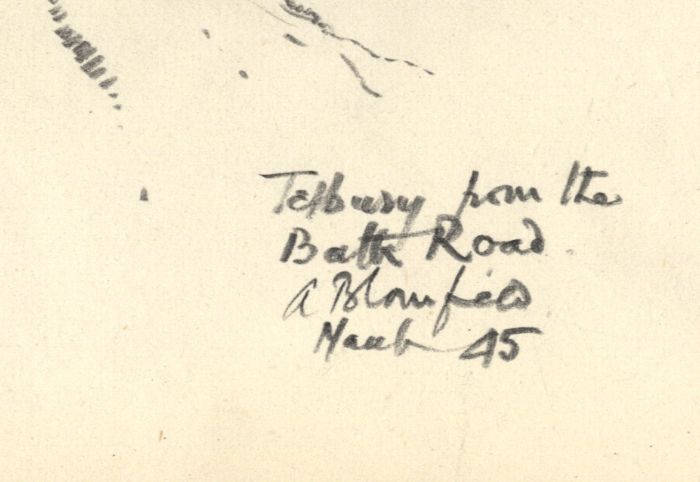 Tetbury from the
Bath Road.
A Blomfield
March 45